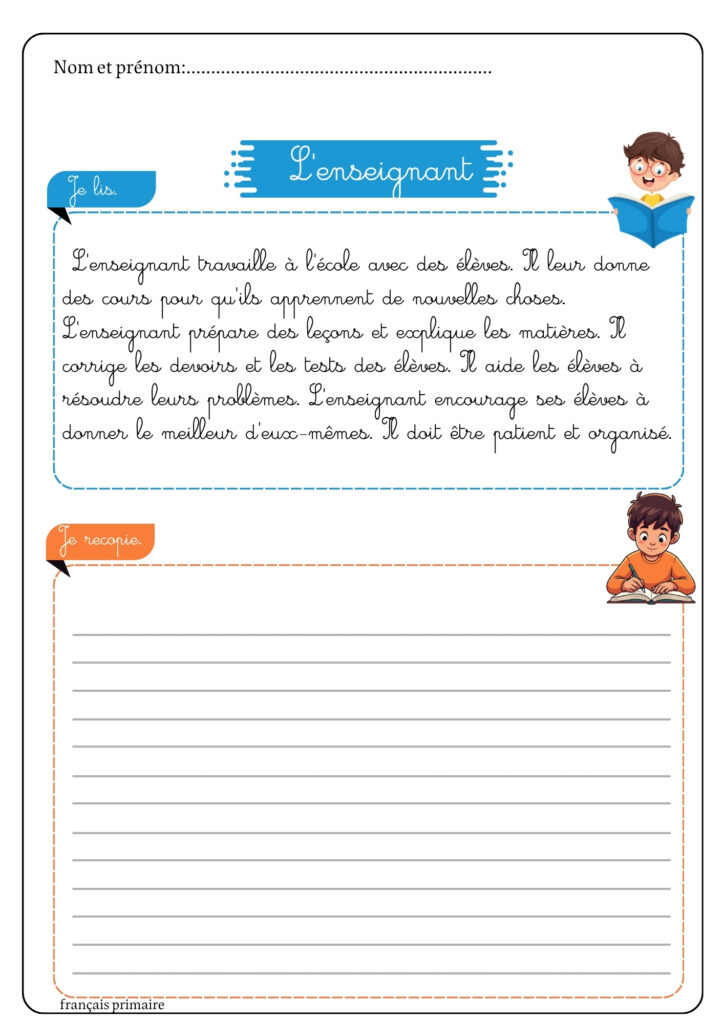 Nom et prénom:...............................................................
L'enseignant
Je lis.
L'enseignant travaille à l'école avec des élèves. Il leur donne
des cours pour qu'ils apprennent de nouvelles choses.
L'enseignant prépare des leçons et explique les matières. Il
corrige les devoirs et les tests des élèves. Il aide les élèves à
résoudre leurs problèmes. L'enseignant encourage ses élèves à
donner le meilleur d'eux-mêmes. Il doit être patient et organisé.
Je recopie.
français primaire